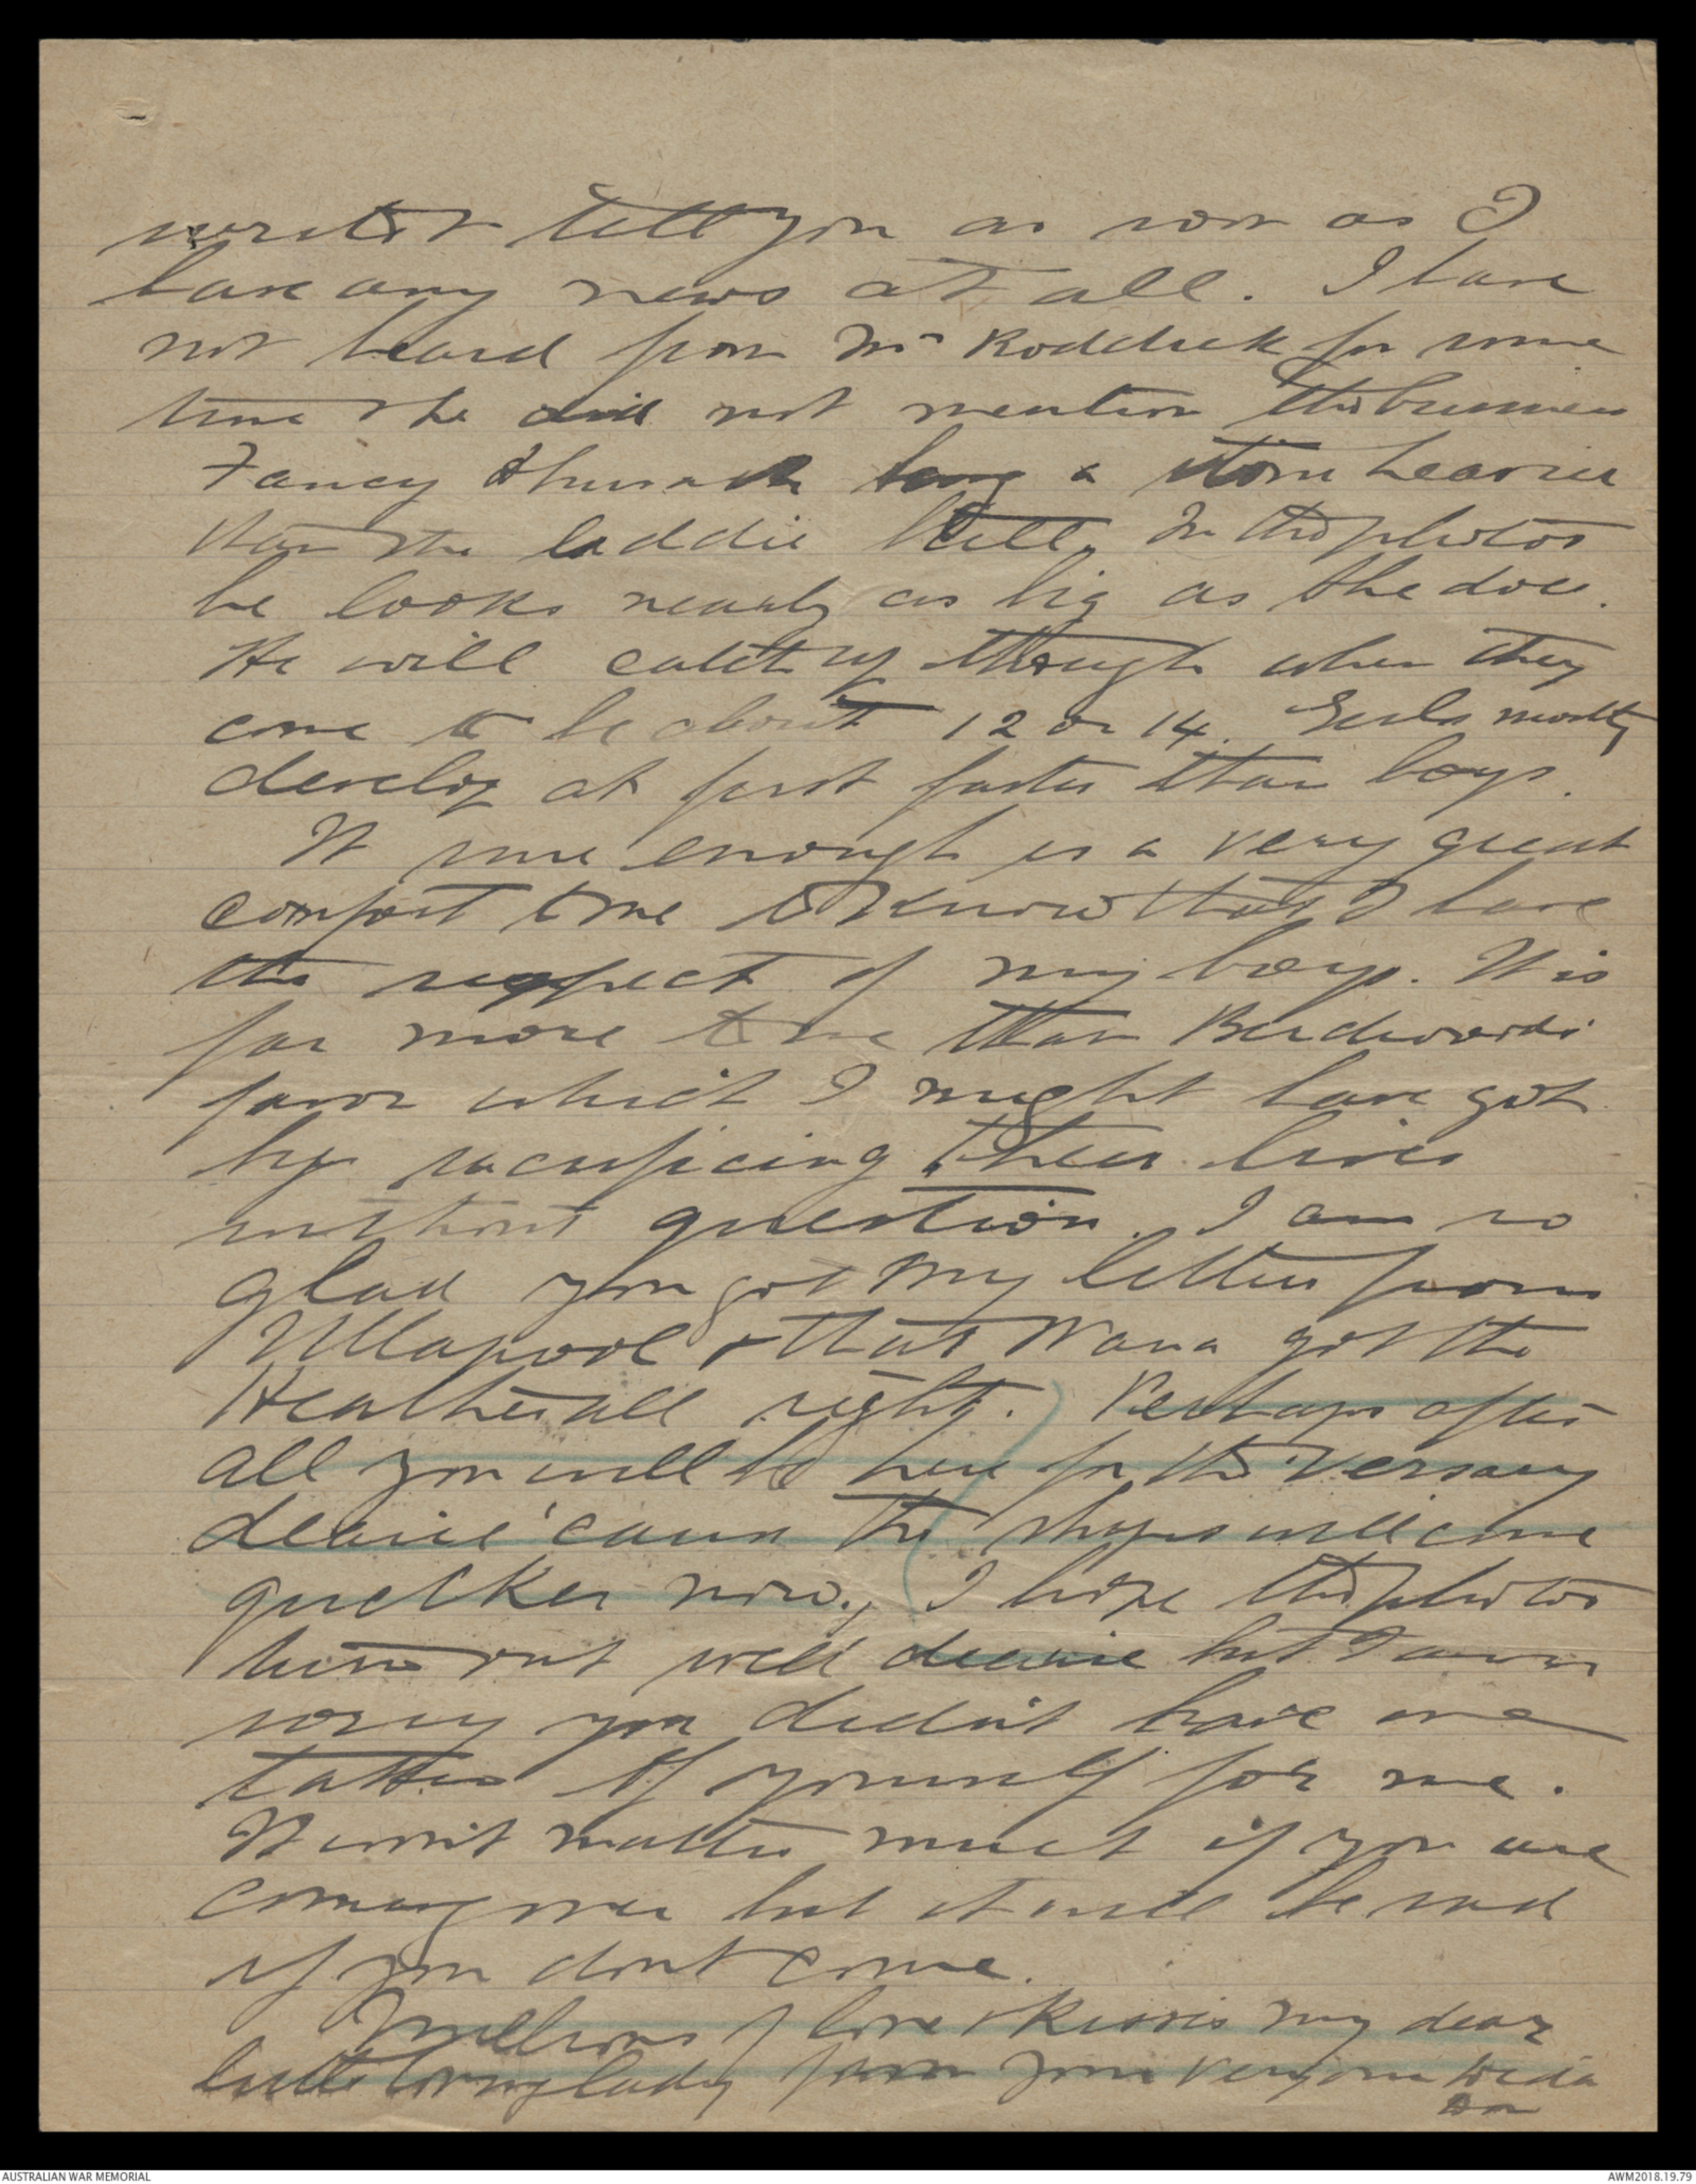 write & tell you as soon as I
have any news at all. I have
not heard from Mr Roddick for some
time & he did not mention the business
Fancy being a stone heavier
than the laddie still. In the photos
he looks nearly as big as she does.
He will catch up though when they
come to be about 12 or 14. Girls mostly
develop at first faster than boys.
It sure enough is a very great
comfort to me to know that I have
the respect of my boys. It is
far more to me than Birdwoods
favor which I might have got
by sacrificing their lives
without question. I am so
glad you got my letters from
Ullapool & that Nana got the
Heather all right. Perhaps after
all you will be here for the 'Versary
dearie 'cause the ships will come
quicker now. I hope the photos
turn out well dearie but I am
sorry you didn't have one
taken of yourself for me.
It won't matter much if you are
coming over but it will be sad
if you dont come.
Millions of love & kisses my dear
little loving lady from your very own
AUSTRALIAN WAR MEMORIAL
AWM2018.19.79